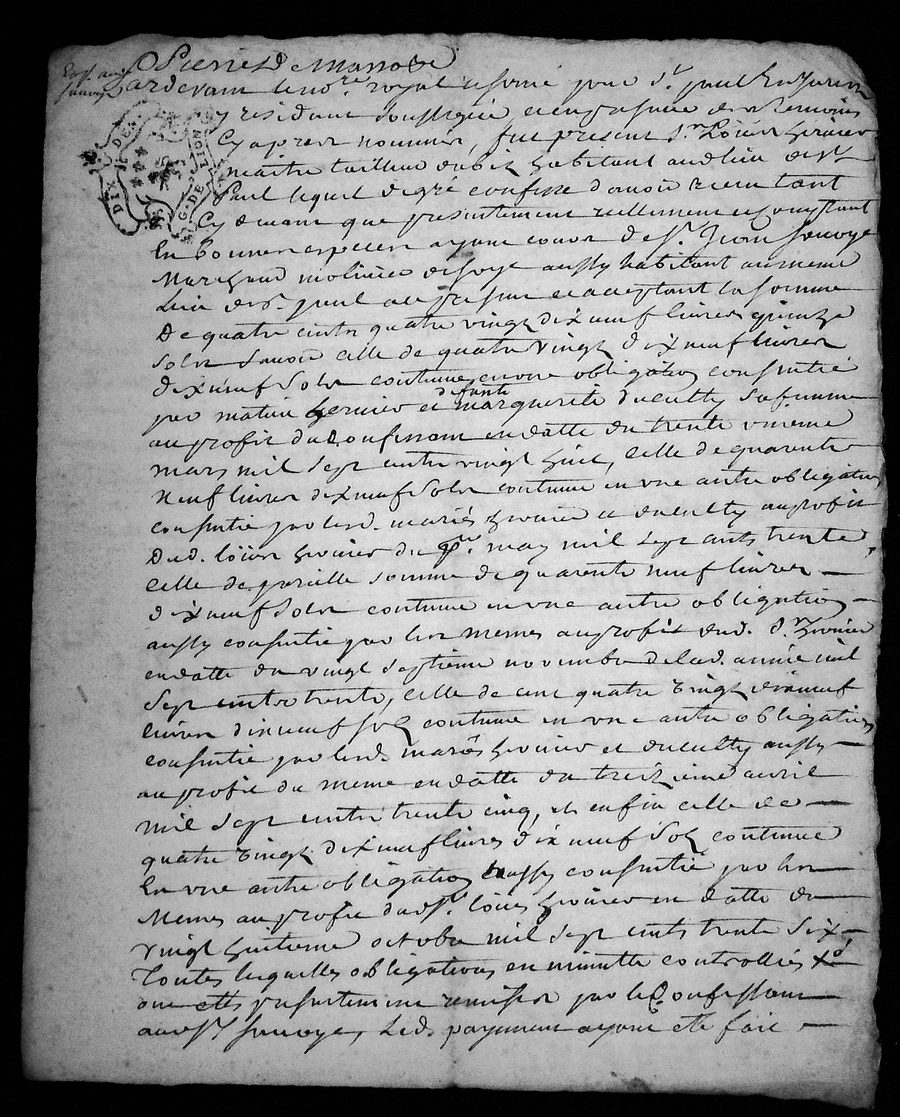 Par devant le no.re royal réservé pour S.t paul En Jarez
y residant soussigné, et en presence des temoins
Cy apres nommés, fut present s.r Loüis Grenier
maitre tailleur d'habits habitant audit lieu de S.t
Paul lequel de gré confesse d'avoir receu tant
Cy devant que presentement reellement et comptant
En bonnes especes ayant cours de S.r Jean
Marchand molinier de soye aussy habitant au meme
Lieu de S.t paul au present et acceptant la somme
De quatre cents quatre vingt dix neuf livres quinze
sols savoir celle de quatre vingt dix neuf livres
dix neuf sols contenue en une obligation consentie
par matieu et defunte marguerite sa femme
au profit du Confessant en datte du trente unieme
mars mil sept cents vingt huit, celle de quarente
Neuf livres dix neuf sols contenue en une autre obligation
consentie par lesd. mariés et au profit
Dud. Loüis du p.er may mil sept cents trente,
Celle de pareille somme de quarente neuf livres
dix neuf sols contenue en une autre obligation
aussy consentie par les memes au profit dud. S.r
en datte du vingt septieme novembre de lad. année mil
Sept cents trente, celle de cent quatre vingt dix neuf
livres dix neuf sols contenue en une autre obligation
consentie par lesd. mariés et aussy
au profit du meme en datte du treizieme avril
Mil sept cents trente cinq, et enfin celle de
quatre vingt dix neuf livres dix neuf sols contenue
En une autre obligation aussy consentie par les
Memes au profit dud. S.r Loüis en datte du
vingt huitieme octobre mil sept cents trente six
Toutes lesquelles obligations en minutte controllées
ont etés presentement remises par le Confessant
aud. S.r Led. payement ayant eté fait
DIX DEN
G. DE LION